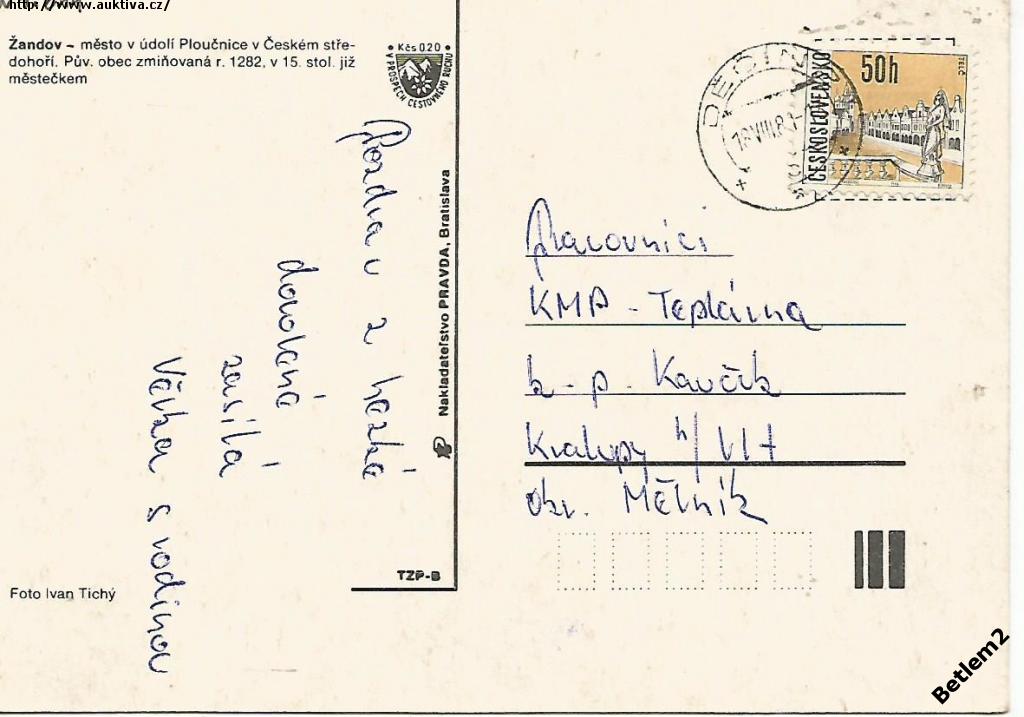 http://www.auktiva.cz/
Žandov – město v údolí Ploučnice v Českém stře-
dohoří. Pův. obec zmiňovaná r. 1282, v 15. stol. již
městečkem
Kčs 0.20
V PROSPĚCH CESTOVNÉHO RUCHU
ČESKOSLOVENSKO
50h
TELČ
Pozdrav z hezké
dovolené
zasílá
Věrka s rodinou
Nakladateľstvo PRAVDA, Bratislava
Pracovníci
KMP - Teplárna
k - p - Kaučuk
Kralupy n/Vlt
okr. Mělník
TZP-B
Foto Ivan Tichý
Betlem2